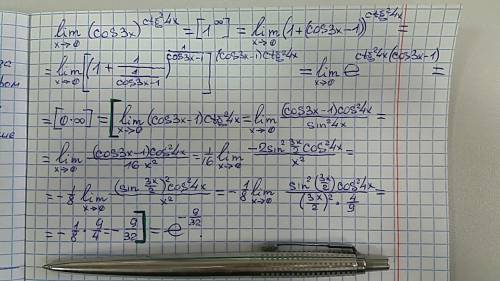 lim_{x→0} (cos3x)^{ctg²4x} = [1^∞] = lim_{x→0} (1+(cos3x-1))^{ctg²4x} =
= lim_{x→0} [(1 + 1/(1/(cos3x-1)))^{1/(cos3x-1)}]^{(cos3x-1)ctg²4x} = lim_{x→0} e^{ctg²4x(cos3x-1)} =
= [0·∞] = [lim_{x→0} (cos3x-1)ctg²4x = lim_{x→0} (cos3x-1)cos²4x / sin²4x =
= lim_{x→0} (cos3x-1)cos²4x / 16x² = 1/16 lim_{x→0} -2sin² 3x/2 cos²4x / x² =
= -1/8 lim_{x→0} (sin 3x/2)² cos²4x / x² = -1/8 lim_{x→0} sin²(3x/2) cos²4x / (3x/2)² · 4/9 =
= -1/8 · 9/4 = -9/32] = e^{-9/32}.